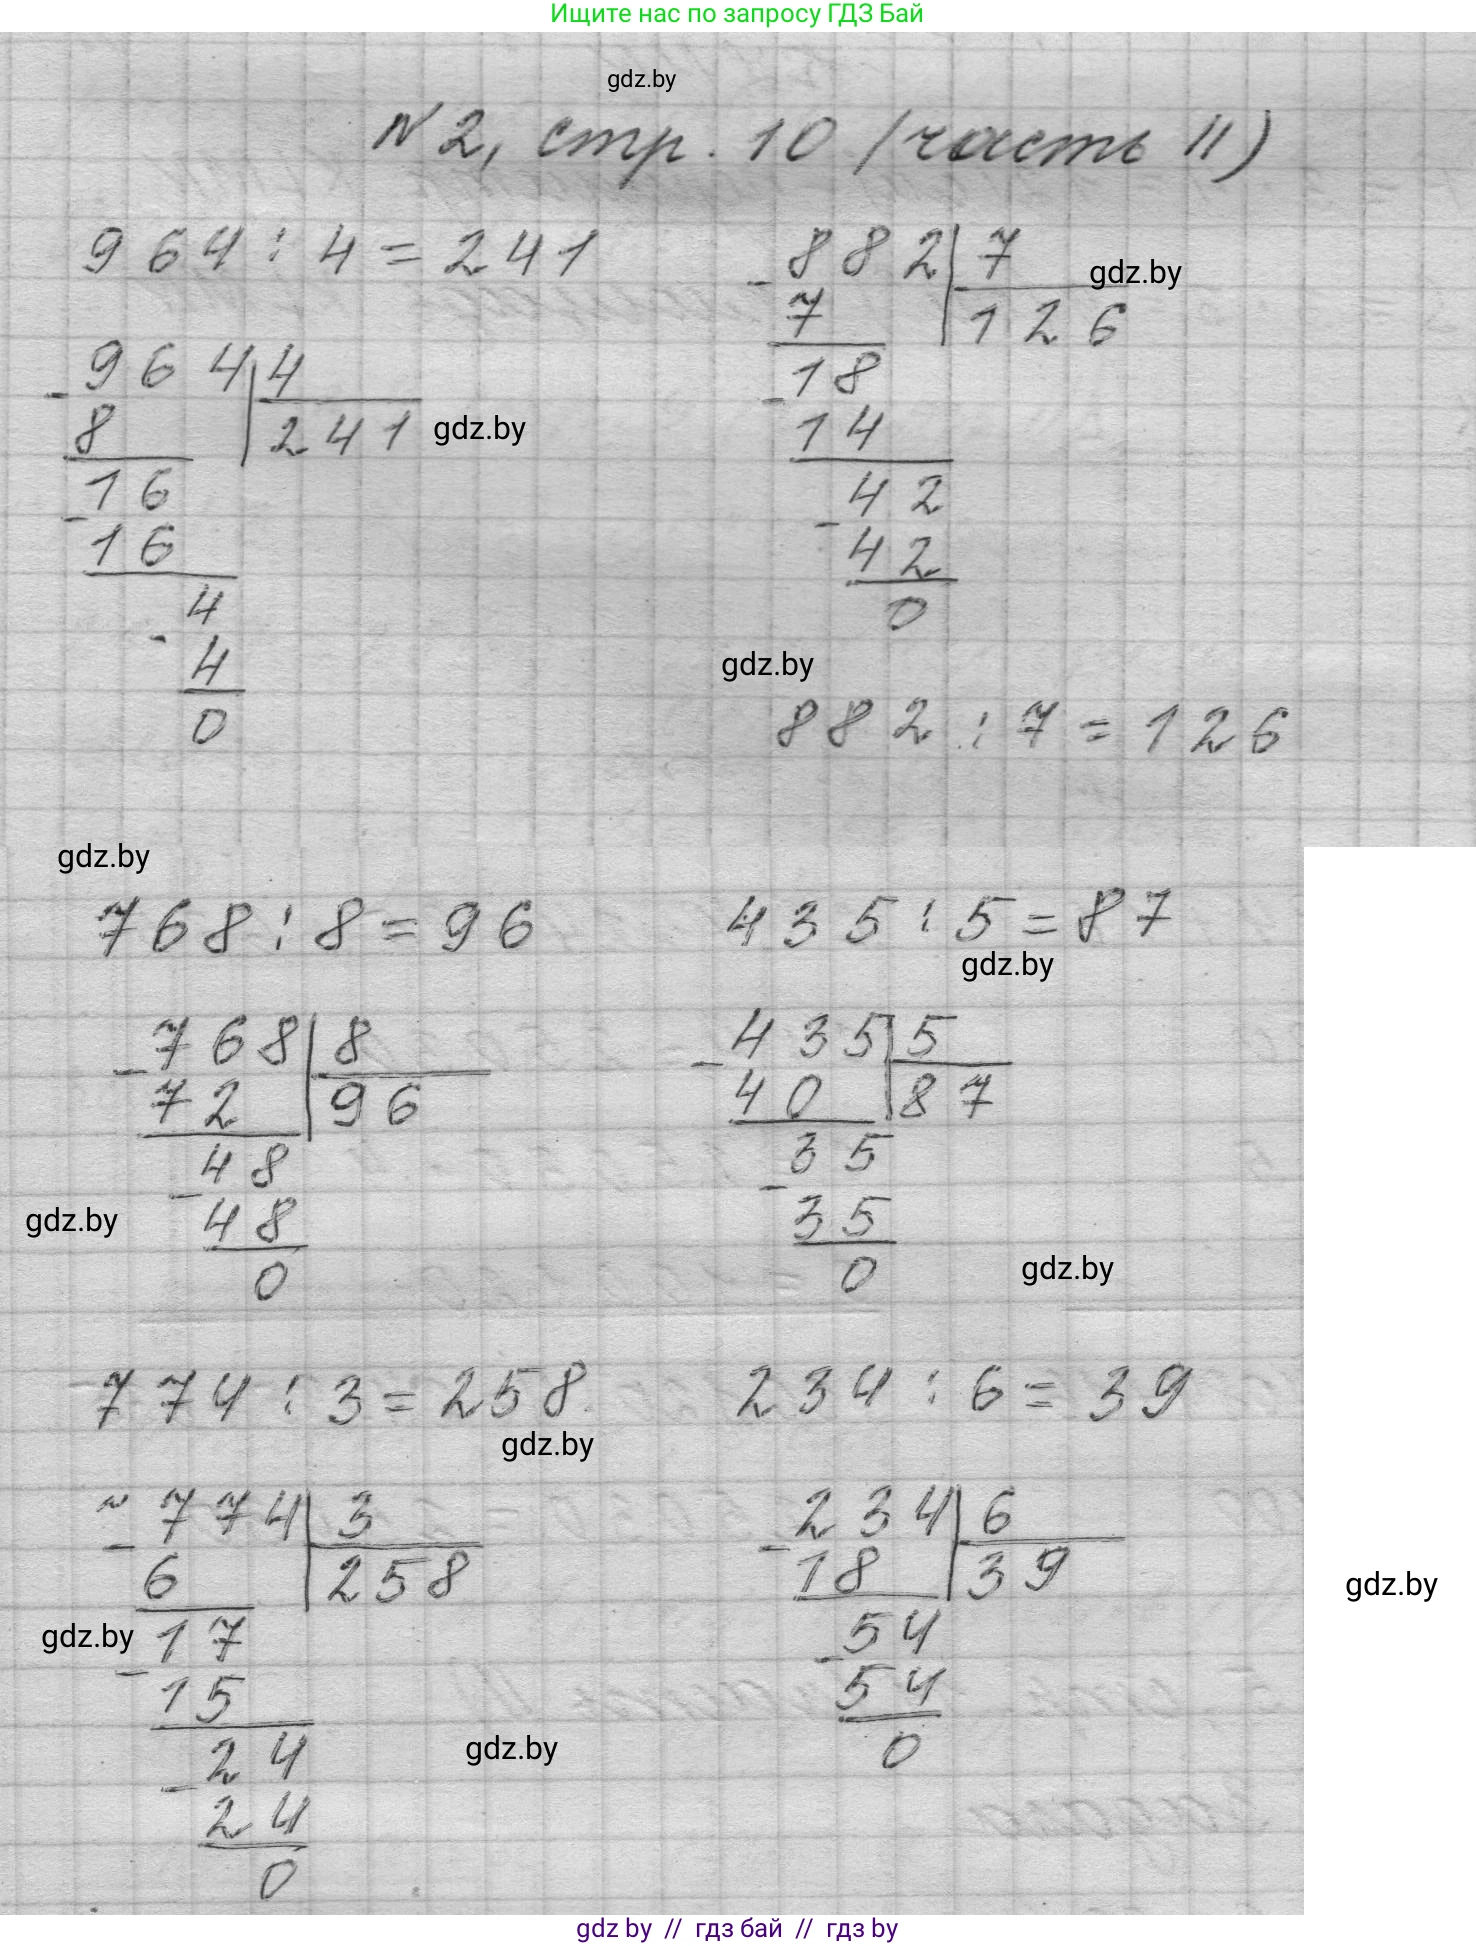 Ищите нас по запросу ГДЗ Бай
gdz.by
№2, стр. 10 (часть II)
964 : 4 = 241
- 964 | 4
8 | 241 gdz.by
16
- 16
4
- 4
0
- 882 | 7 gdz.by
7 | 126
18
- 14
42
- 42
0
gdz.by
882 : 7 = 126
gdz.by
768 : 8 = 96
- 768 | 8
72 | 96
48
- 48
0
gdz.by
435 : 5 = 87
gdz.by
- 435 | 5
40 | 87
35
- 35
0
gdz.by
774 : 3 = 258.
gdz.by
- 774 | 3
6 | 258
gdz.by
17
- 15
24
- 24
0
gdz.by
234 : 6 = 39
- 234 | 6
18 | 39
54
- 54
0
gdz.by
gdz by // гдз бай // гдз by